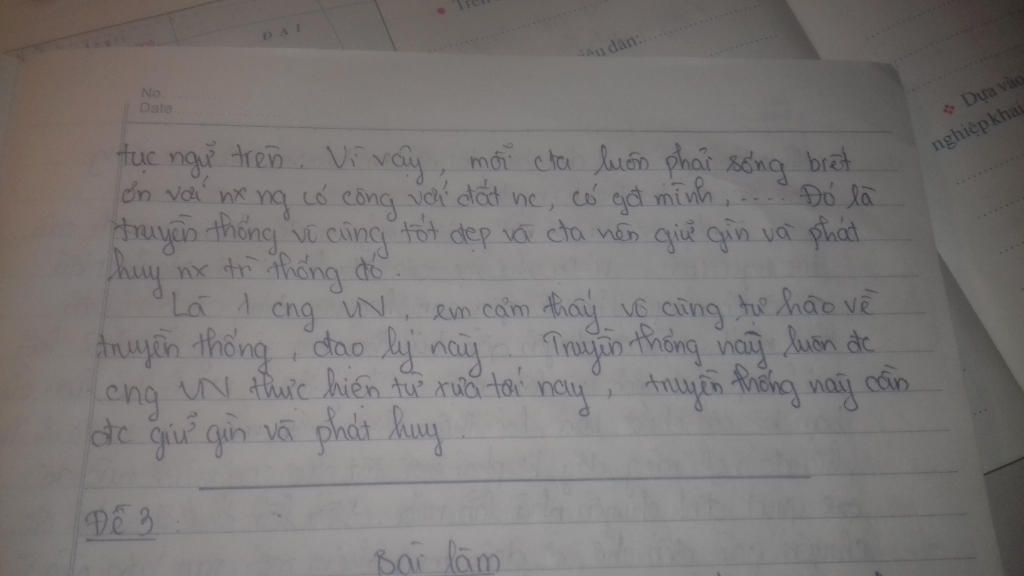 ĐẠI
Trên
iêu dân:
Dựa vào
nghiệp khai
No
Date
tục ngữ trên. Vì vậy, mỗi cta luôn phải sống biết
ơn với nx ng có công với đất nc, có gđ mình, .... Đó là
truyền thống vô cùng tốt đẹp và cta nên giữ gìn và phát
huy nx tr thống đó.
Là 1 cng VN, em cảm thấy vô cùng tự hào về
truyền thống, đạo lý này. Truyền thống này luôn đc
cng VN thực hiện từ xưa tới nay, truyền thống này cần
đc giữ gìn và phát huy.
Đề 3
Bài làm